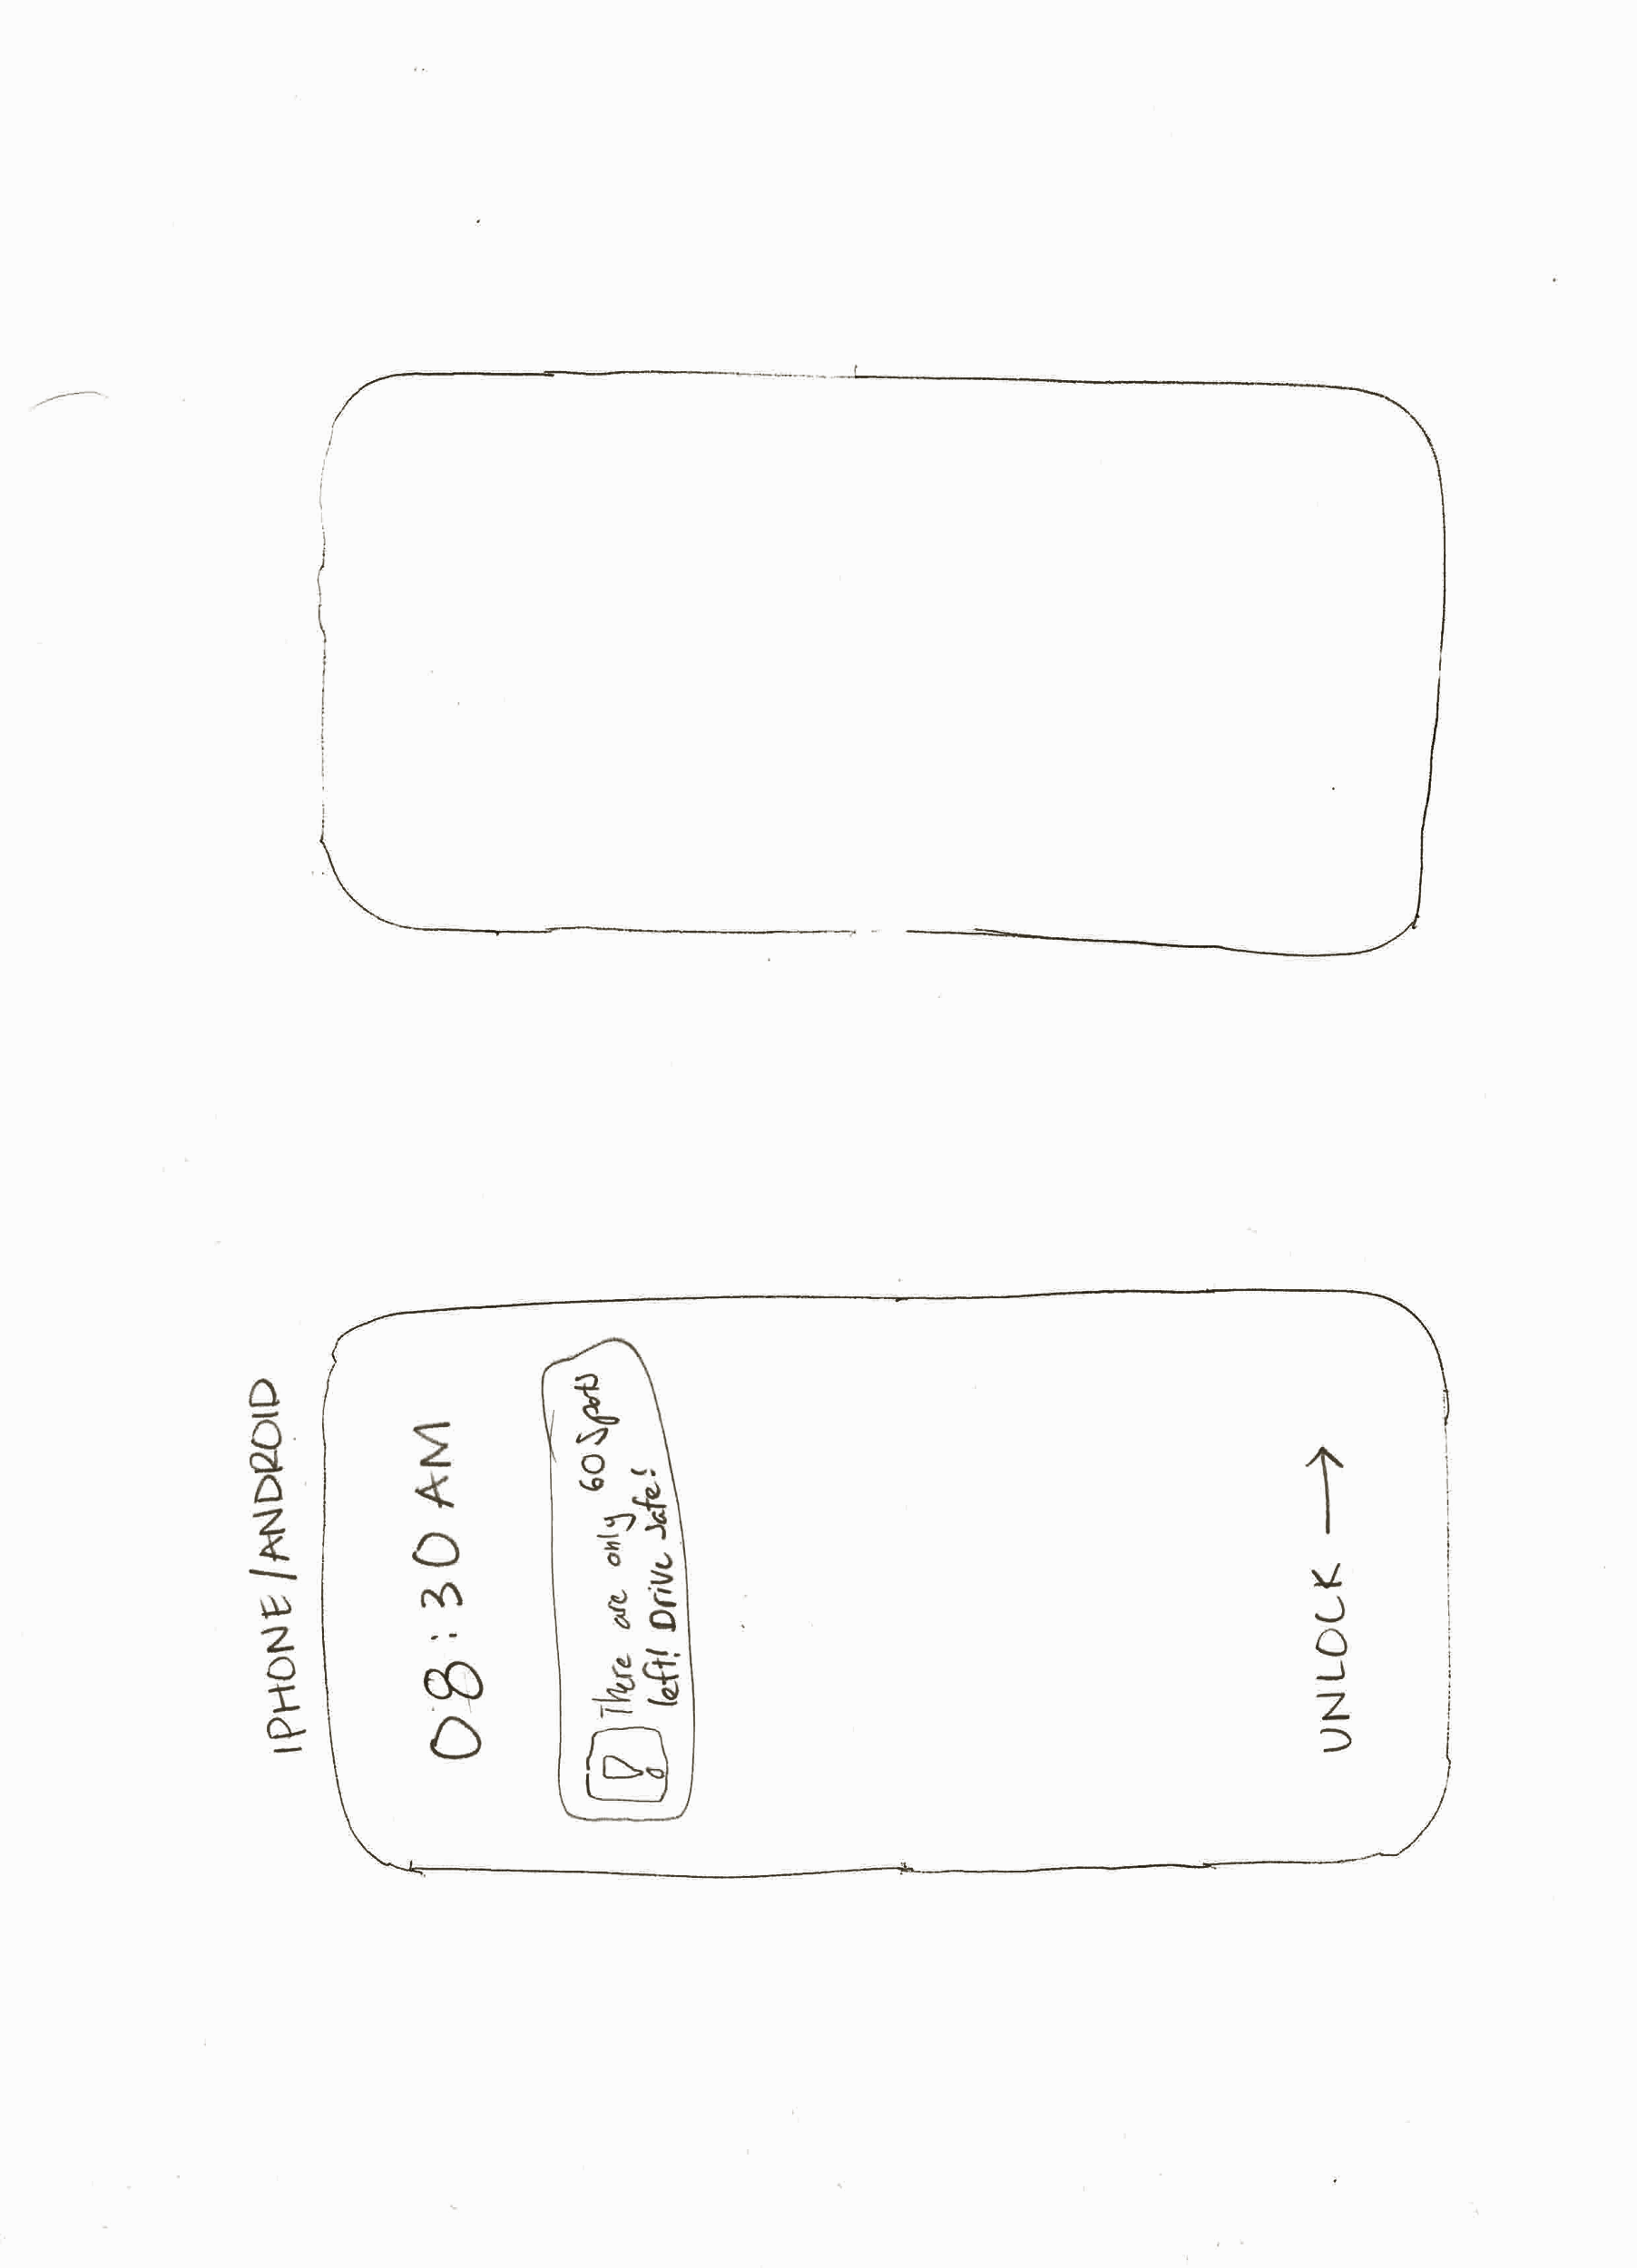 IPHONE/ANDROID
08:30 AM
! There are only 60 Spots
left! Drive Safe!
UNLOCK →